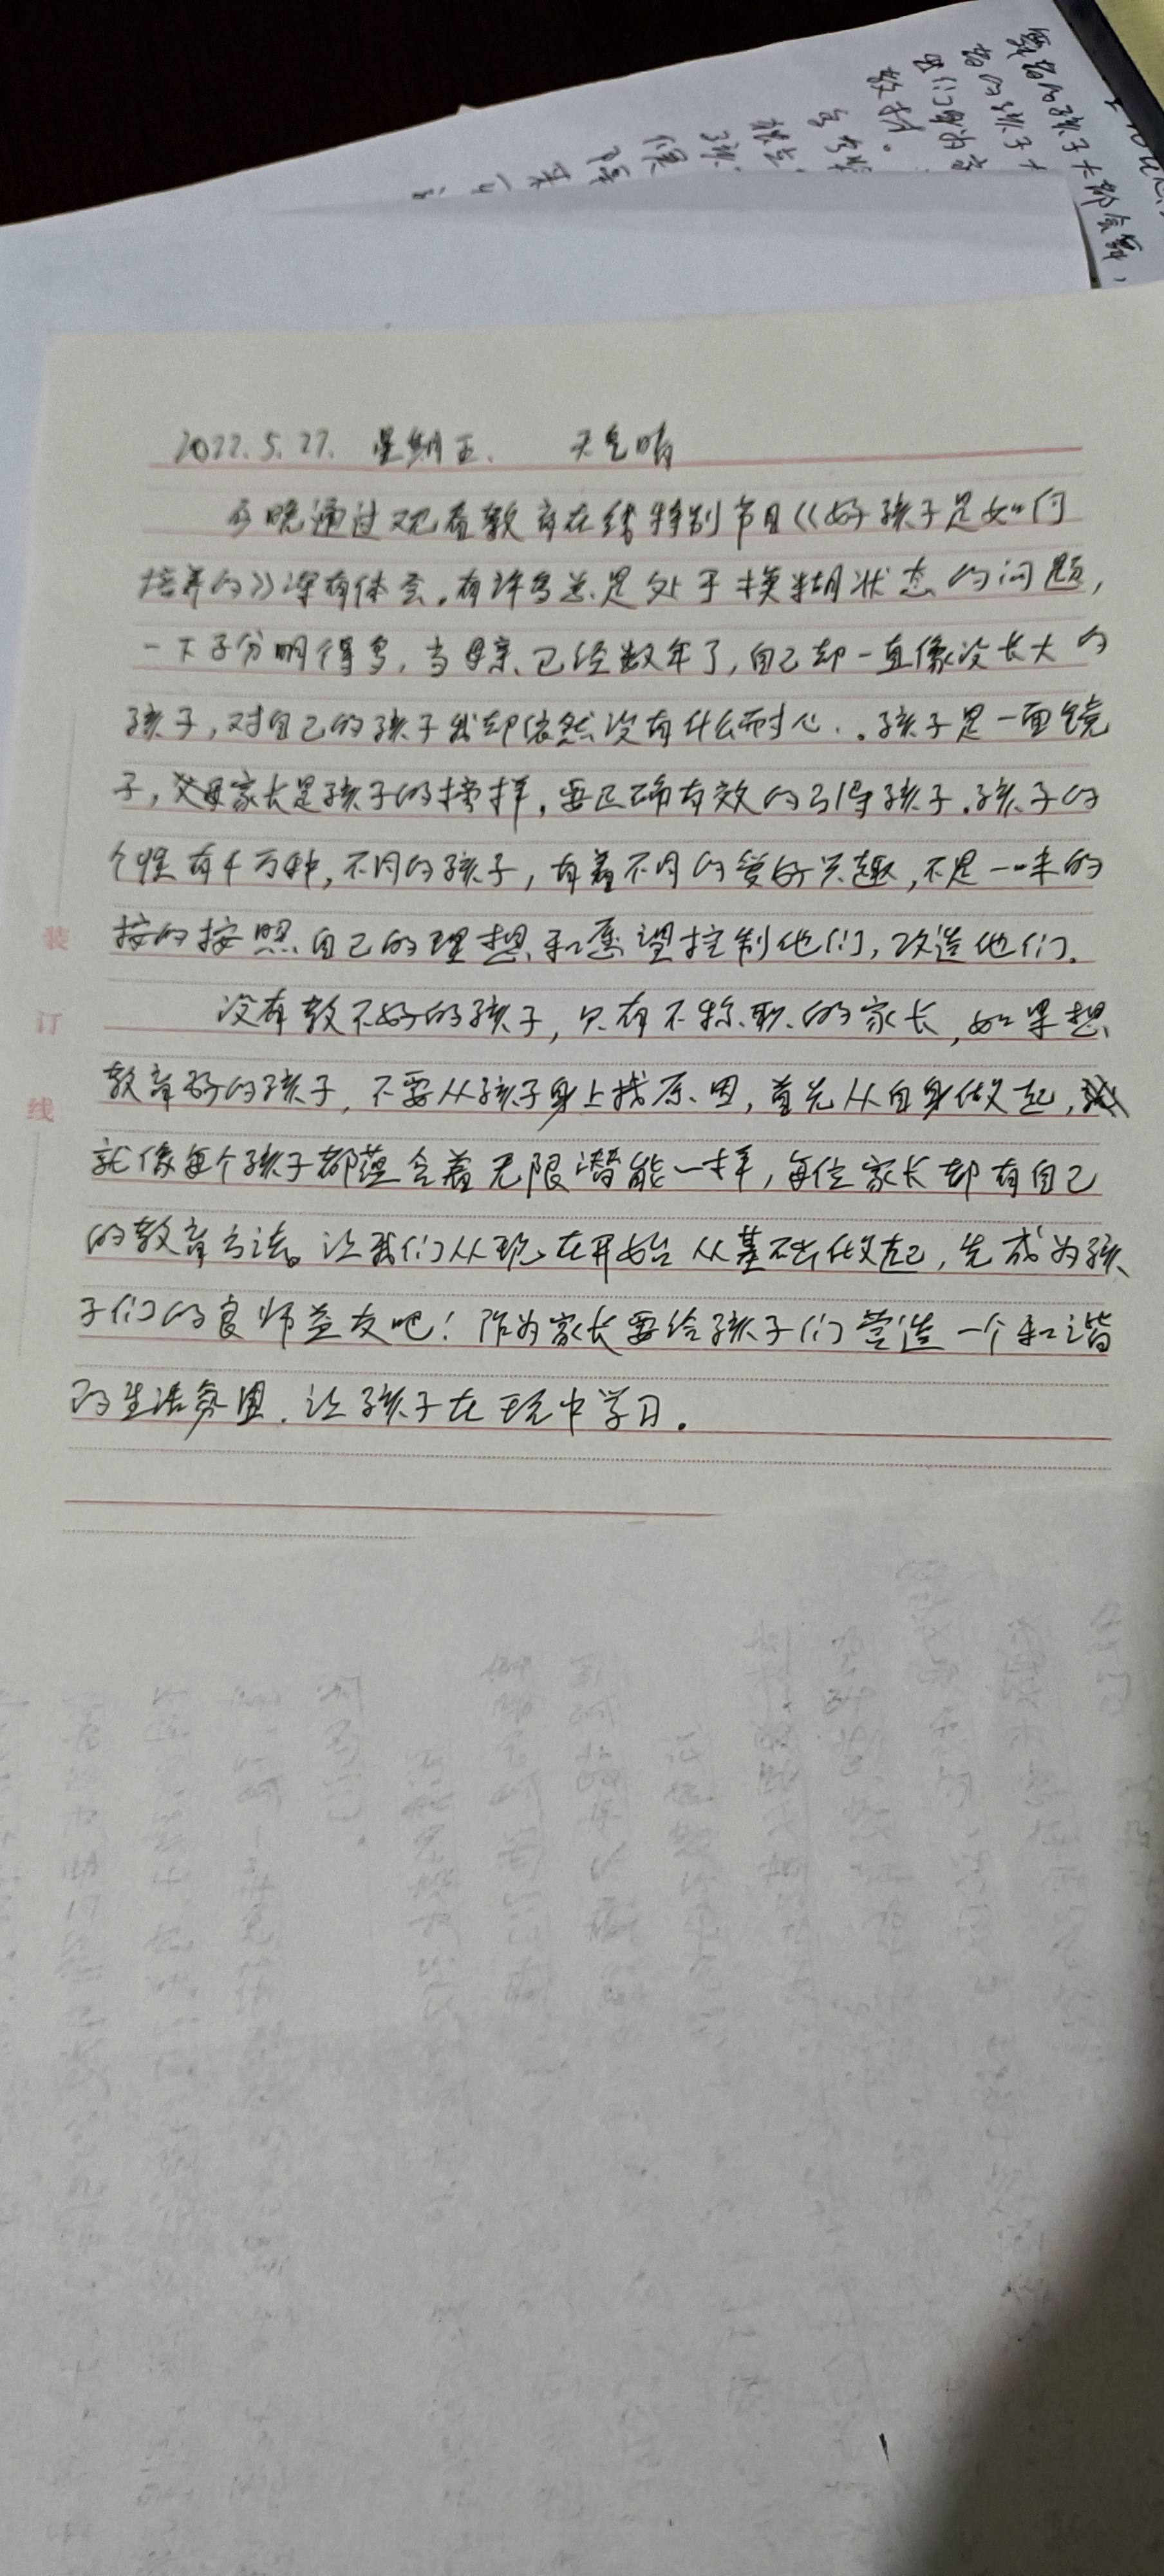 2022.5.27. 星期五. 天气晴
今晚通过观看教育在线特别节目《好孩子是如何
培养的》深有体会。有许多总是处于模糊状态的问题,
一下子分明得多,当母亲已经数年了,自己却一直像没长大的
孩子,对自己的孩子我却依然没有什么耐心..孩子是一面镜
子,父母家长是孩子的榜样,要正确有效的引导孩子.孩子的
个性有千万种,不同的孩子,有着不同的爱好兴趣,不是一味的
按的按照自己的理想和愿望控制他们,改造他们.
没有教不好的孩子,只有不称职的家长,如果想
教育好的孩子,不要从孩子身上找原因,首先从自身做起,
就像每个孩子都蕴含着无限潜能一样,每位家长都有自己
的教育方法。让我们从现在开始从基础做起,先成为孩
子们的良师益友吧!作为家长要给孩子们营造一个和谐
的生活氛围.让孩子在玩中学习。
装
订
线